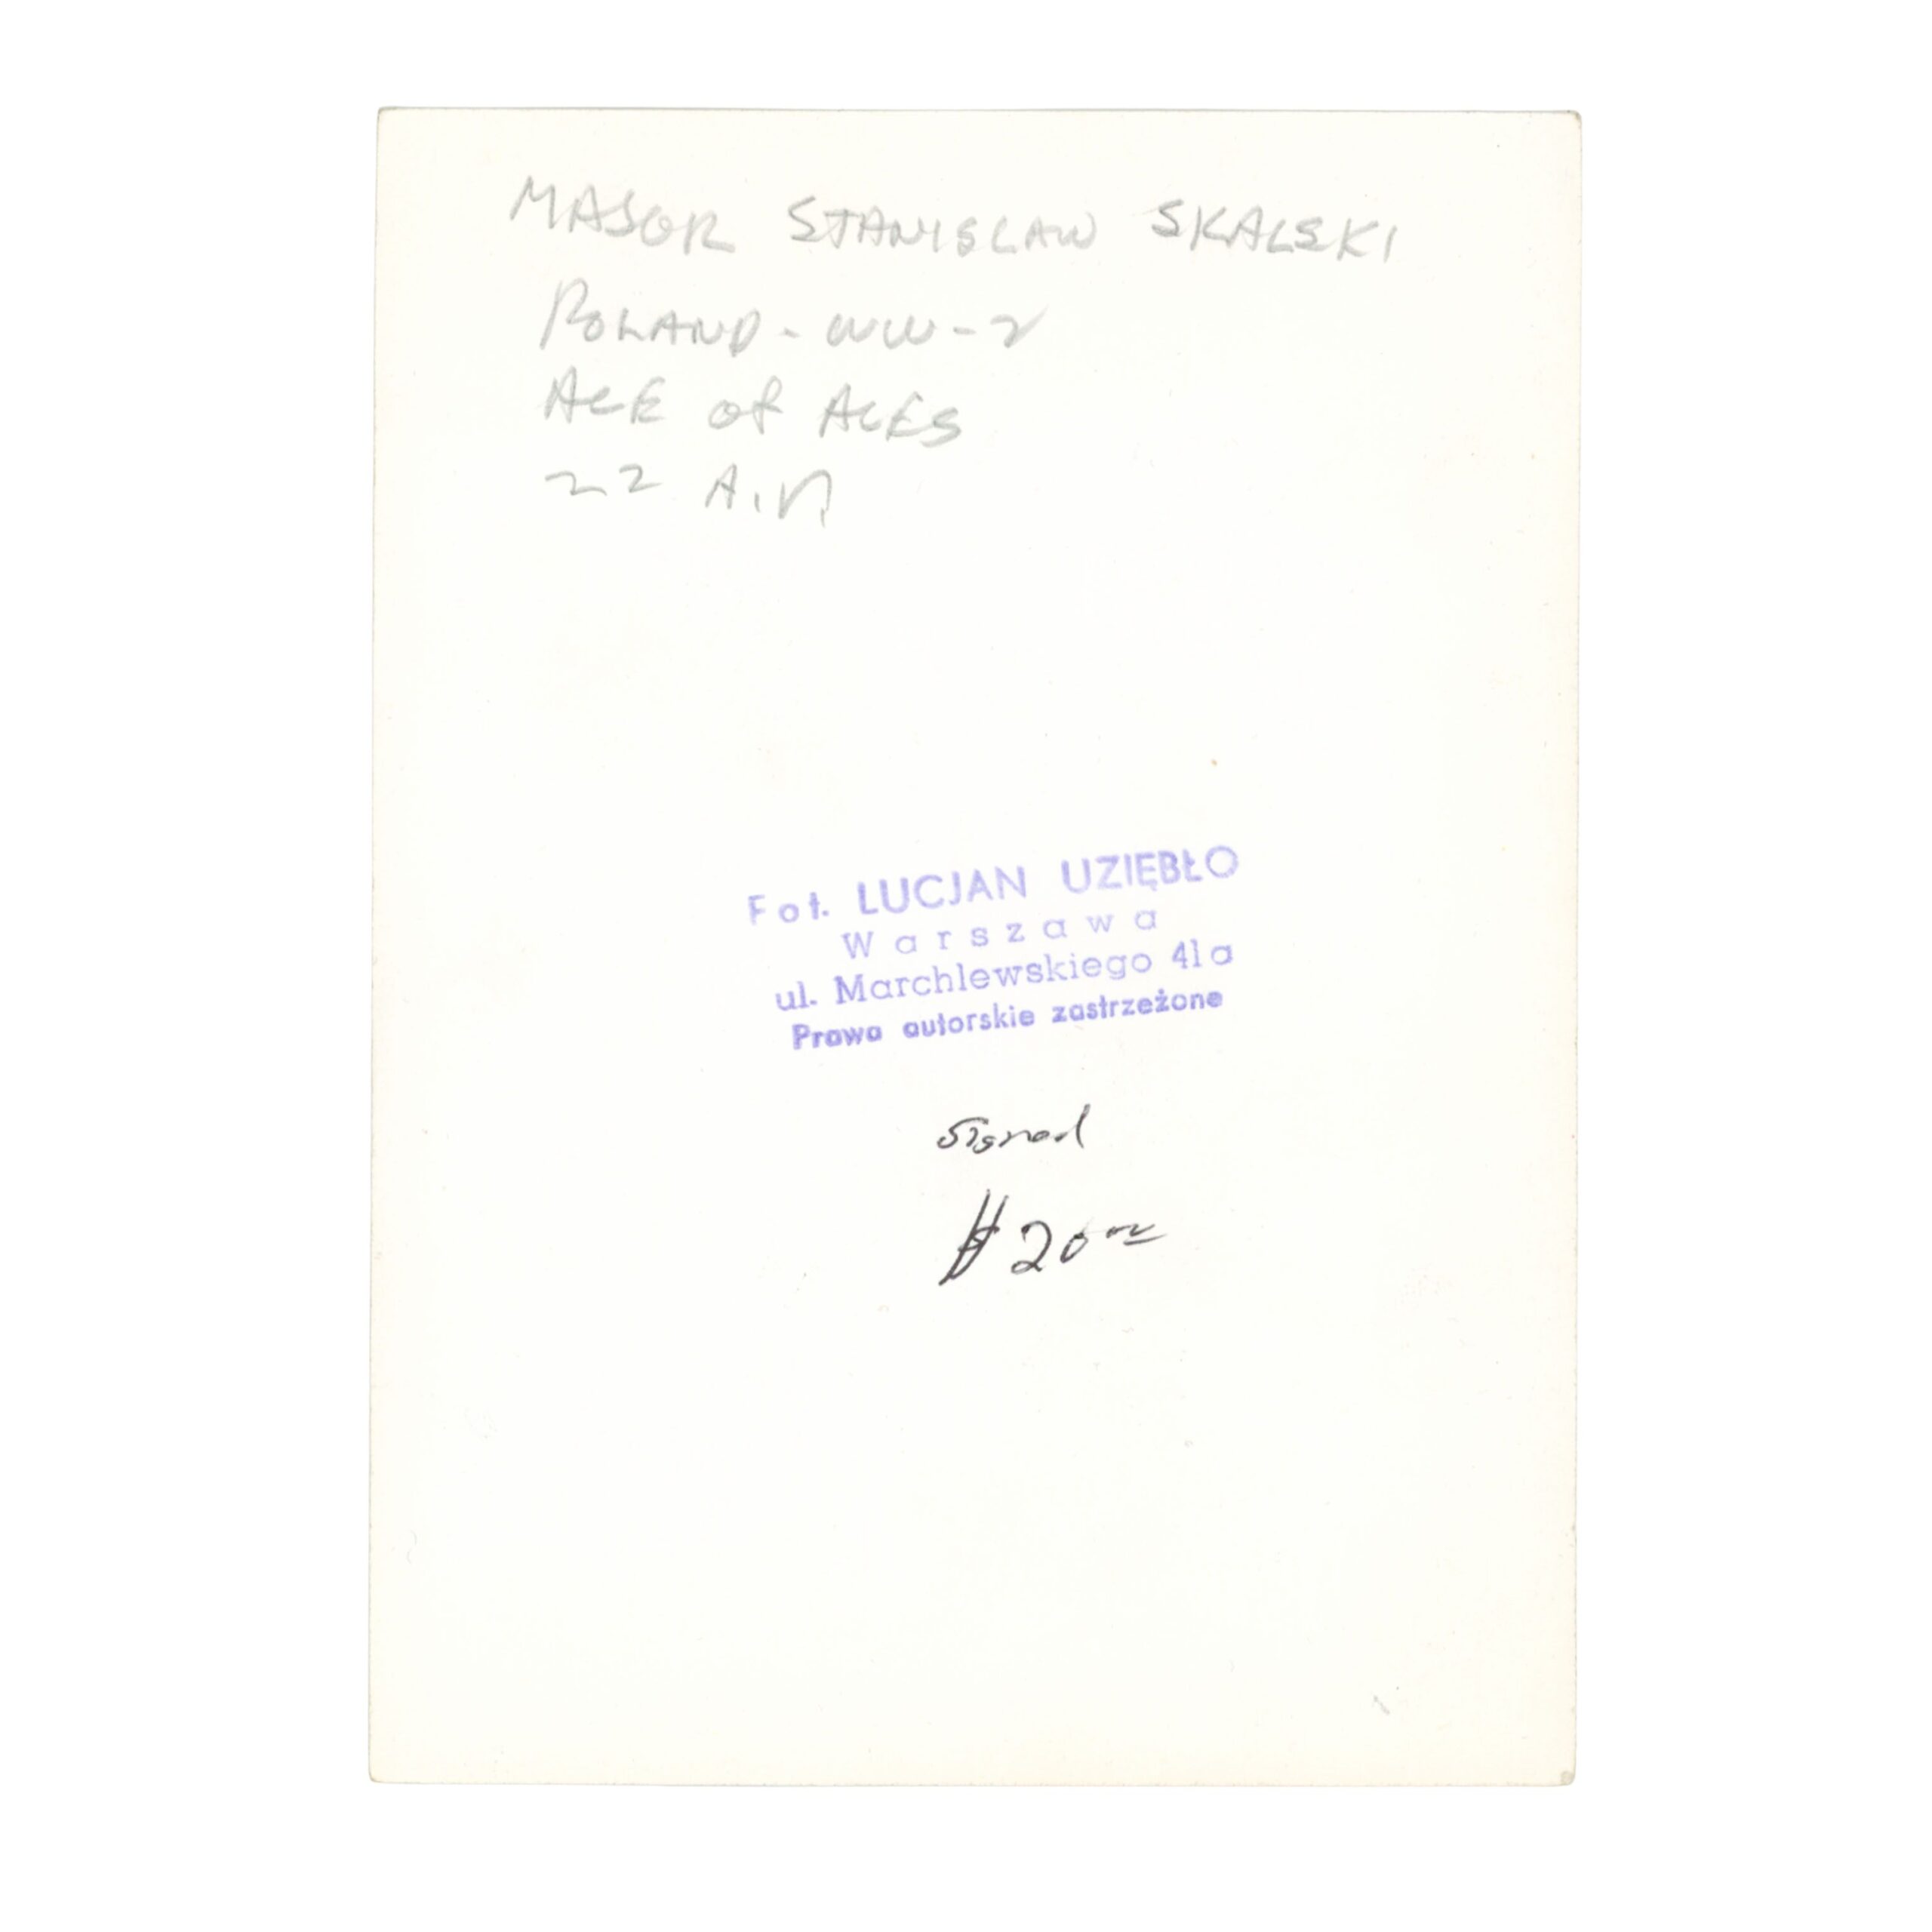 MAJOR STANISLAW SKALSKI
POLAND - WW-2
ACE OF ACES
22 A.V.
Fot. LUCJAN UZIĘBŁO
Warszawa
ul. Marchlewskiego 41a
Prawa autorskie zastrzeżone
signed
$20.00